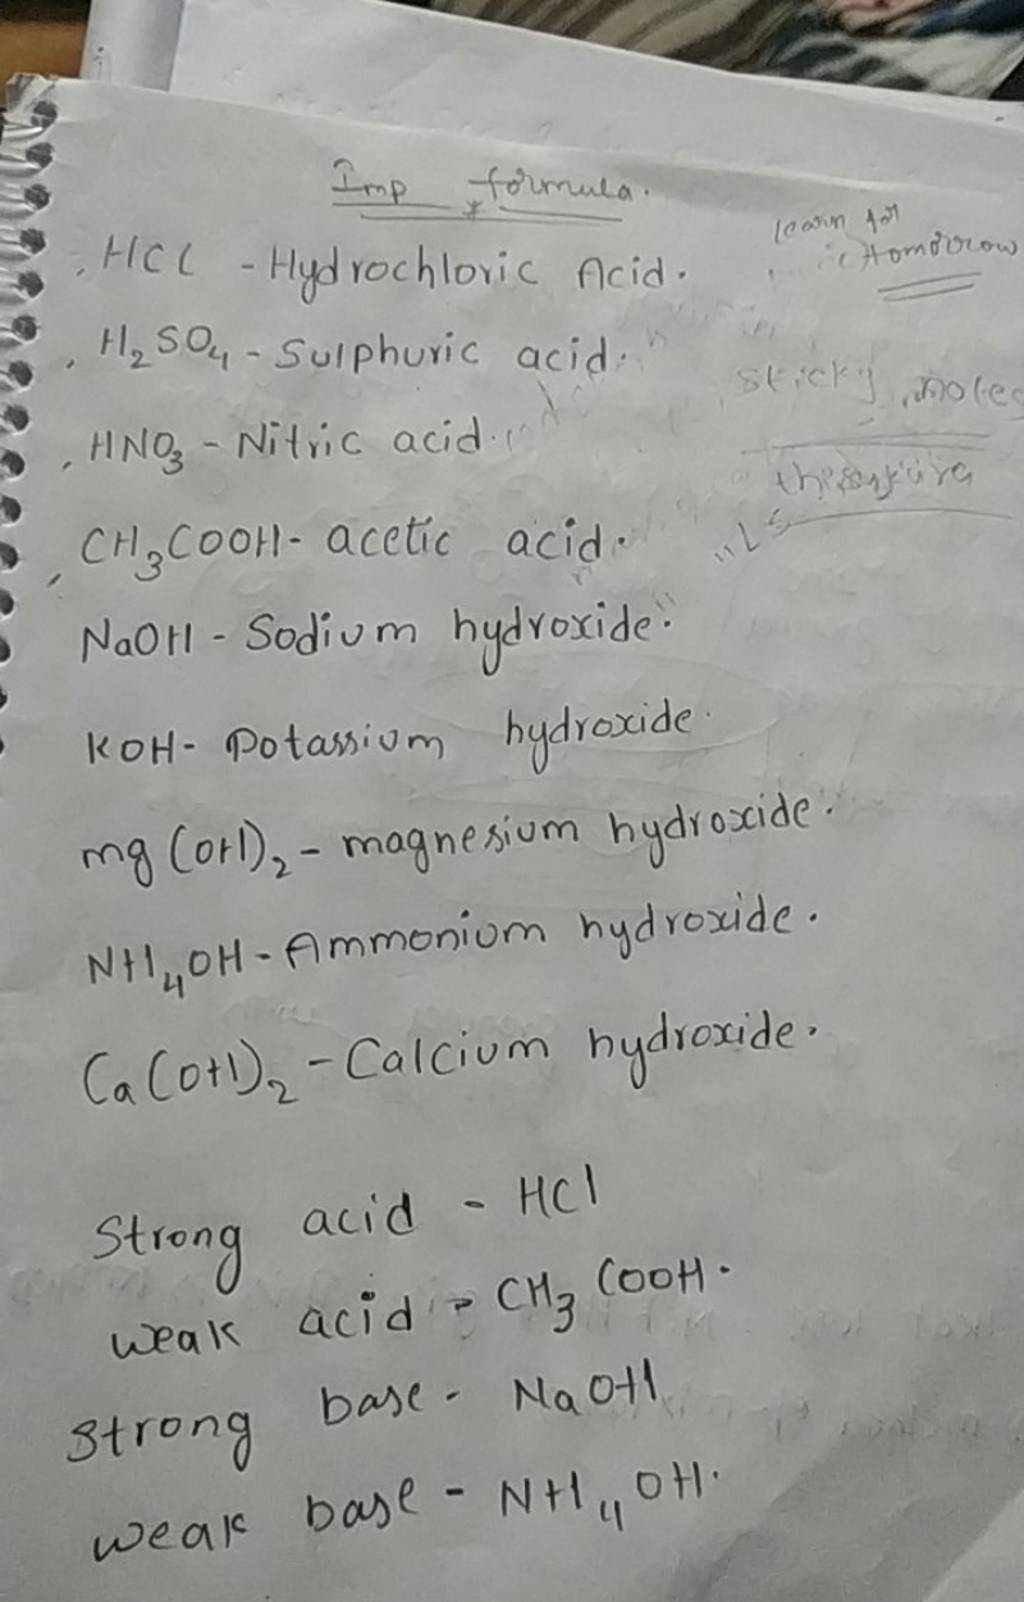 Imp formula.
learn for
tomorrow
HCl - Hydrochloric Acid.
H₂SO₄ - Sulphuric acid.
sticky notes
HNO₃ - Nitric acid.
CH₃COOH - acetic acid.
NaOH - Sodium hydroxide.
KOH - Potassium hydroxide.
mg(OH)₂ - magnesium hydroxide.
NH₄OH - Ammonium hydroxide.
Ca(OH)₂ - Calcium hydroxide.
Strong acid - HCl
weak acid - CH₃COOH.
Strong base - NaOH
weak base - NH₄OH.